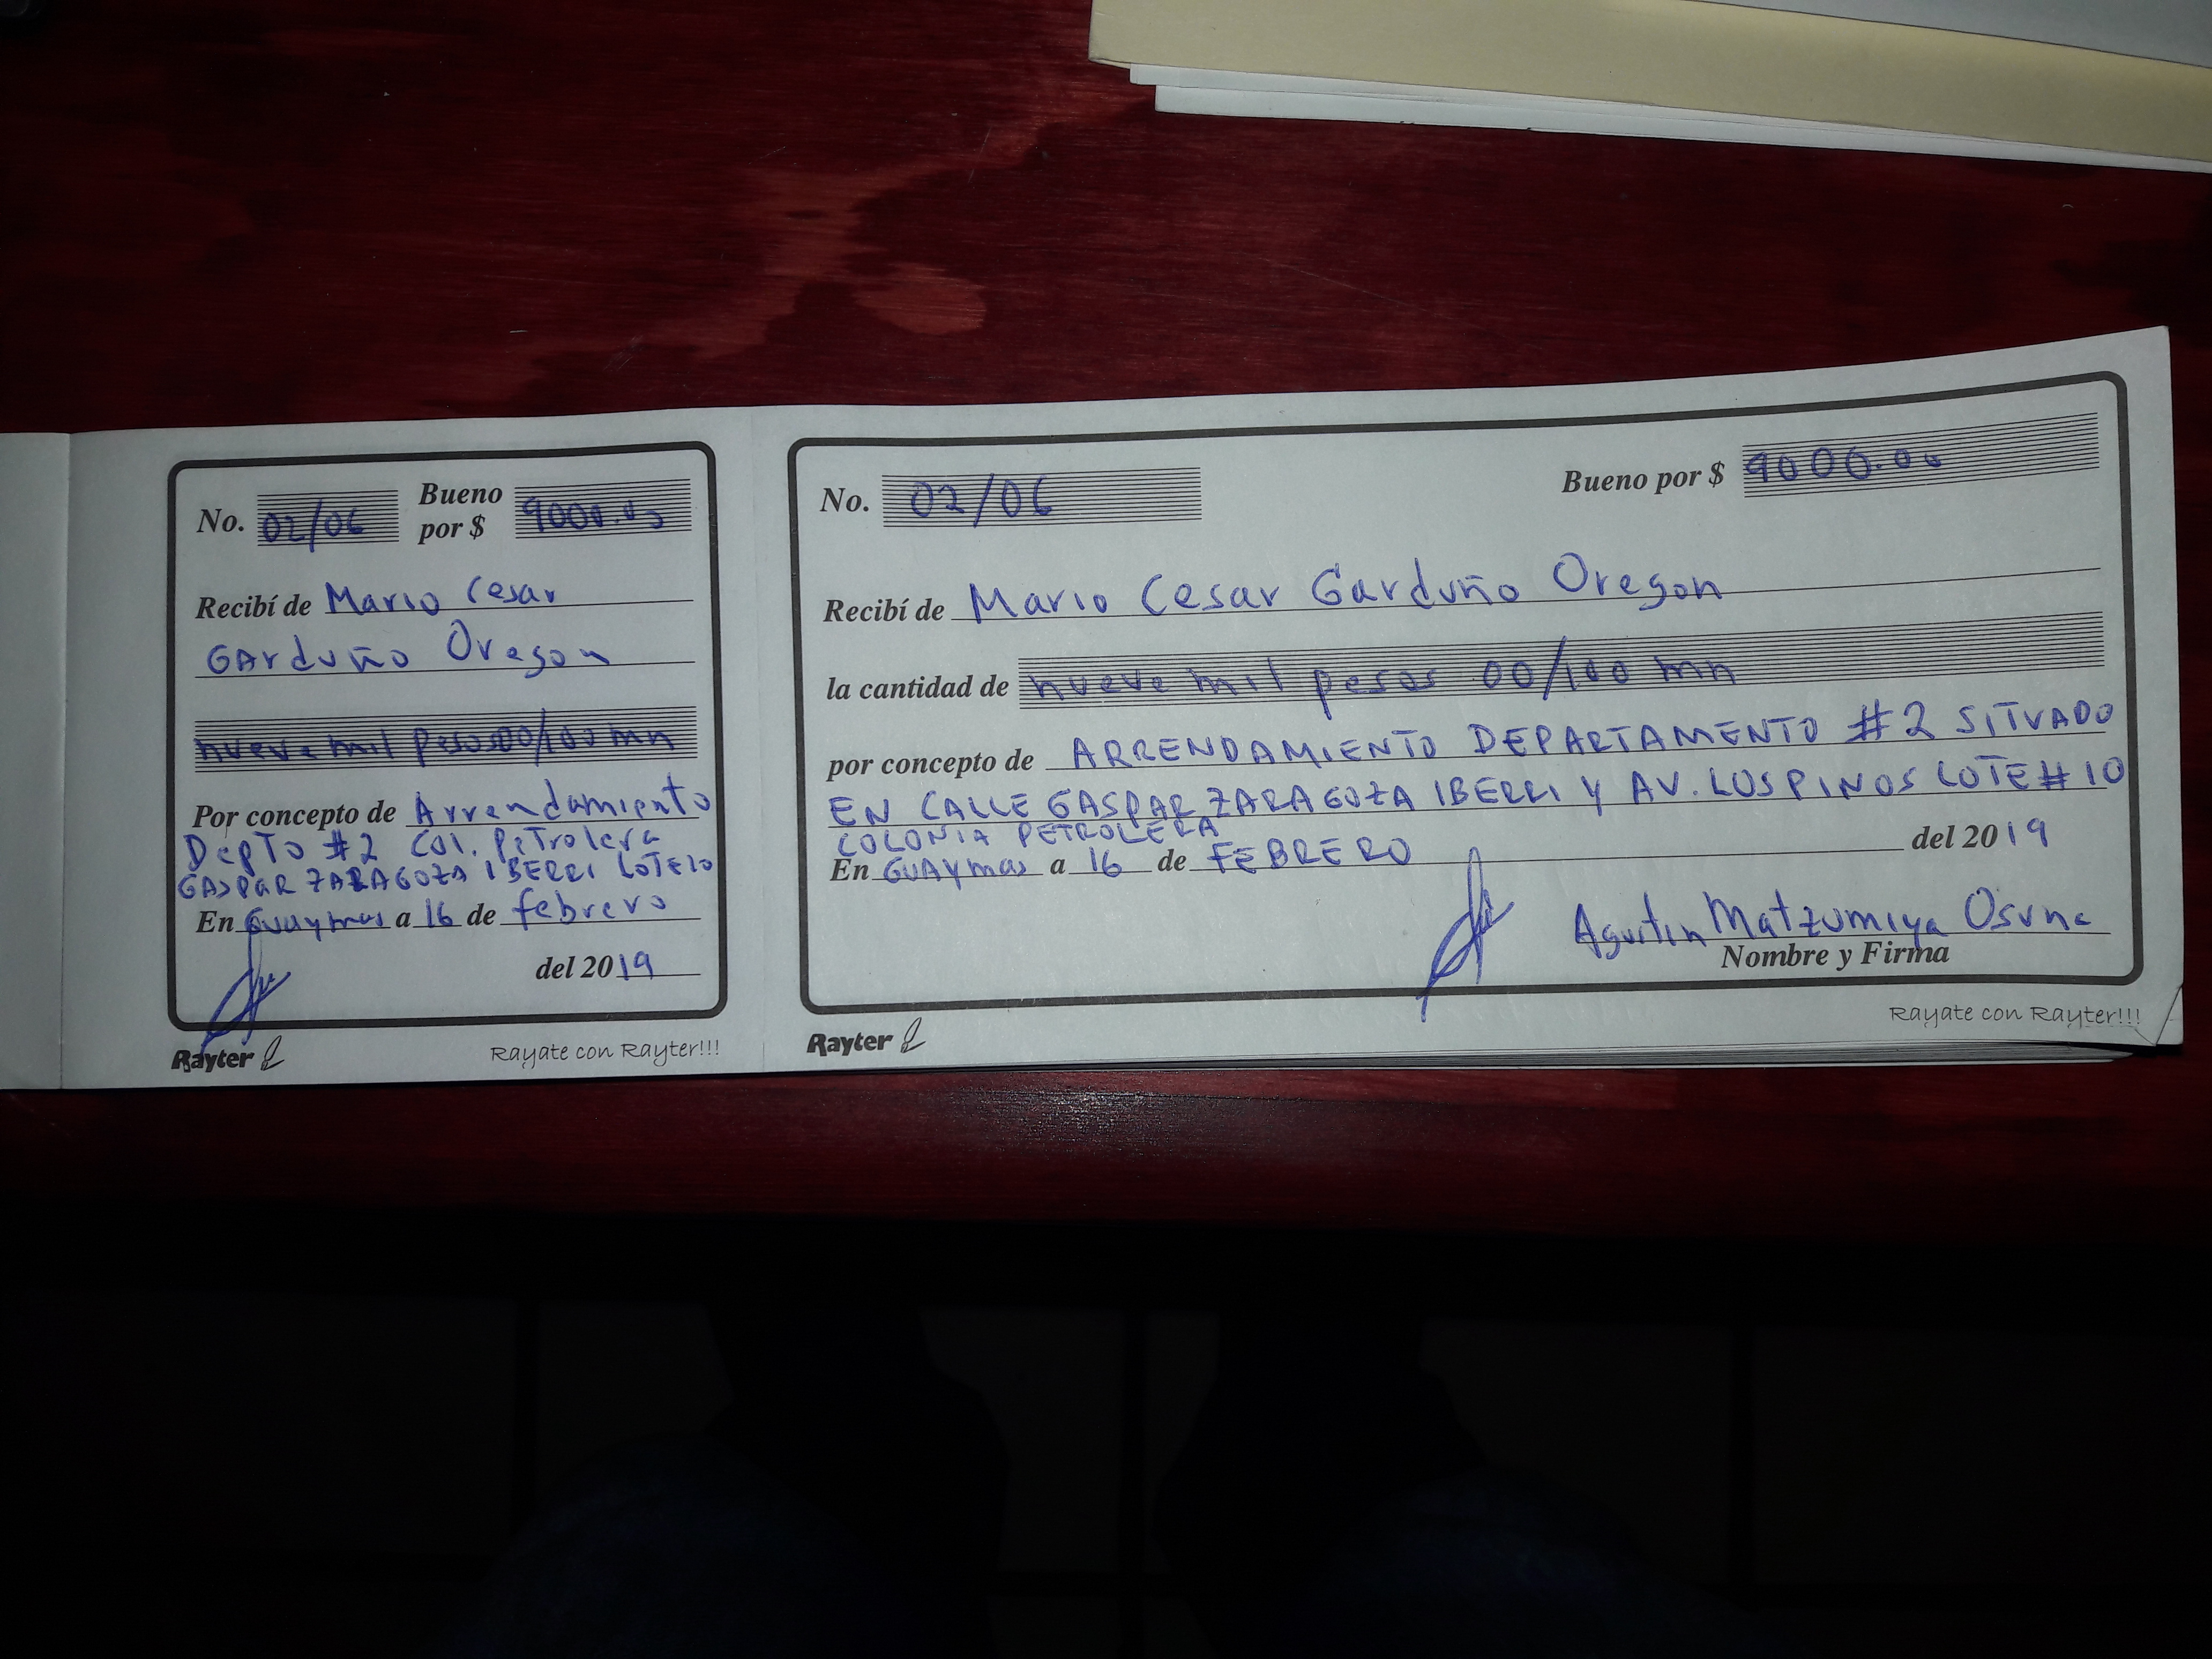 No. 02/06 Bueno por $ 9000.00
Recibí de Mario Cesar
Garduño Oregon
nueve mil pesos 00/100 mn
Por concepto de Arrendamiento
Depto #2 Col. Petrolera
GASPAR ZARAGOZA IBERRI LOTE 10
En Guaymas a 16 de febrero
del 2019
Rayter
Rayate con Rayter!!!
No. 02/06 Bueno por $ 9000.00
Recibí de Mario Cesar Garduño Oregon
la cantidad de nueve mil pesos 00/100 mn
por concepto de ARRENDAMIENTO DEPARTAMENTO #2 SITUADO
EN CALLE GASPAR ZARAGOZA IBERRI Y AV. LOS PINOS LOTE #10
COLONIA PETROLERA
En Guaymas a 16 de FEBRERO del 2019
Agustin Matzumiya Osuna
Nombre y Firma
Rayter
Rayate con Rayter!!!